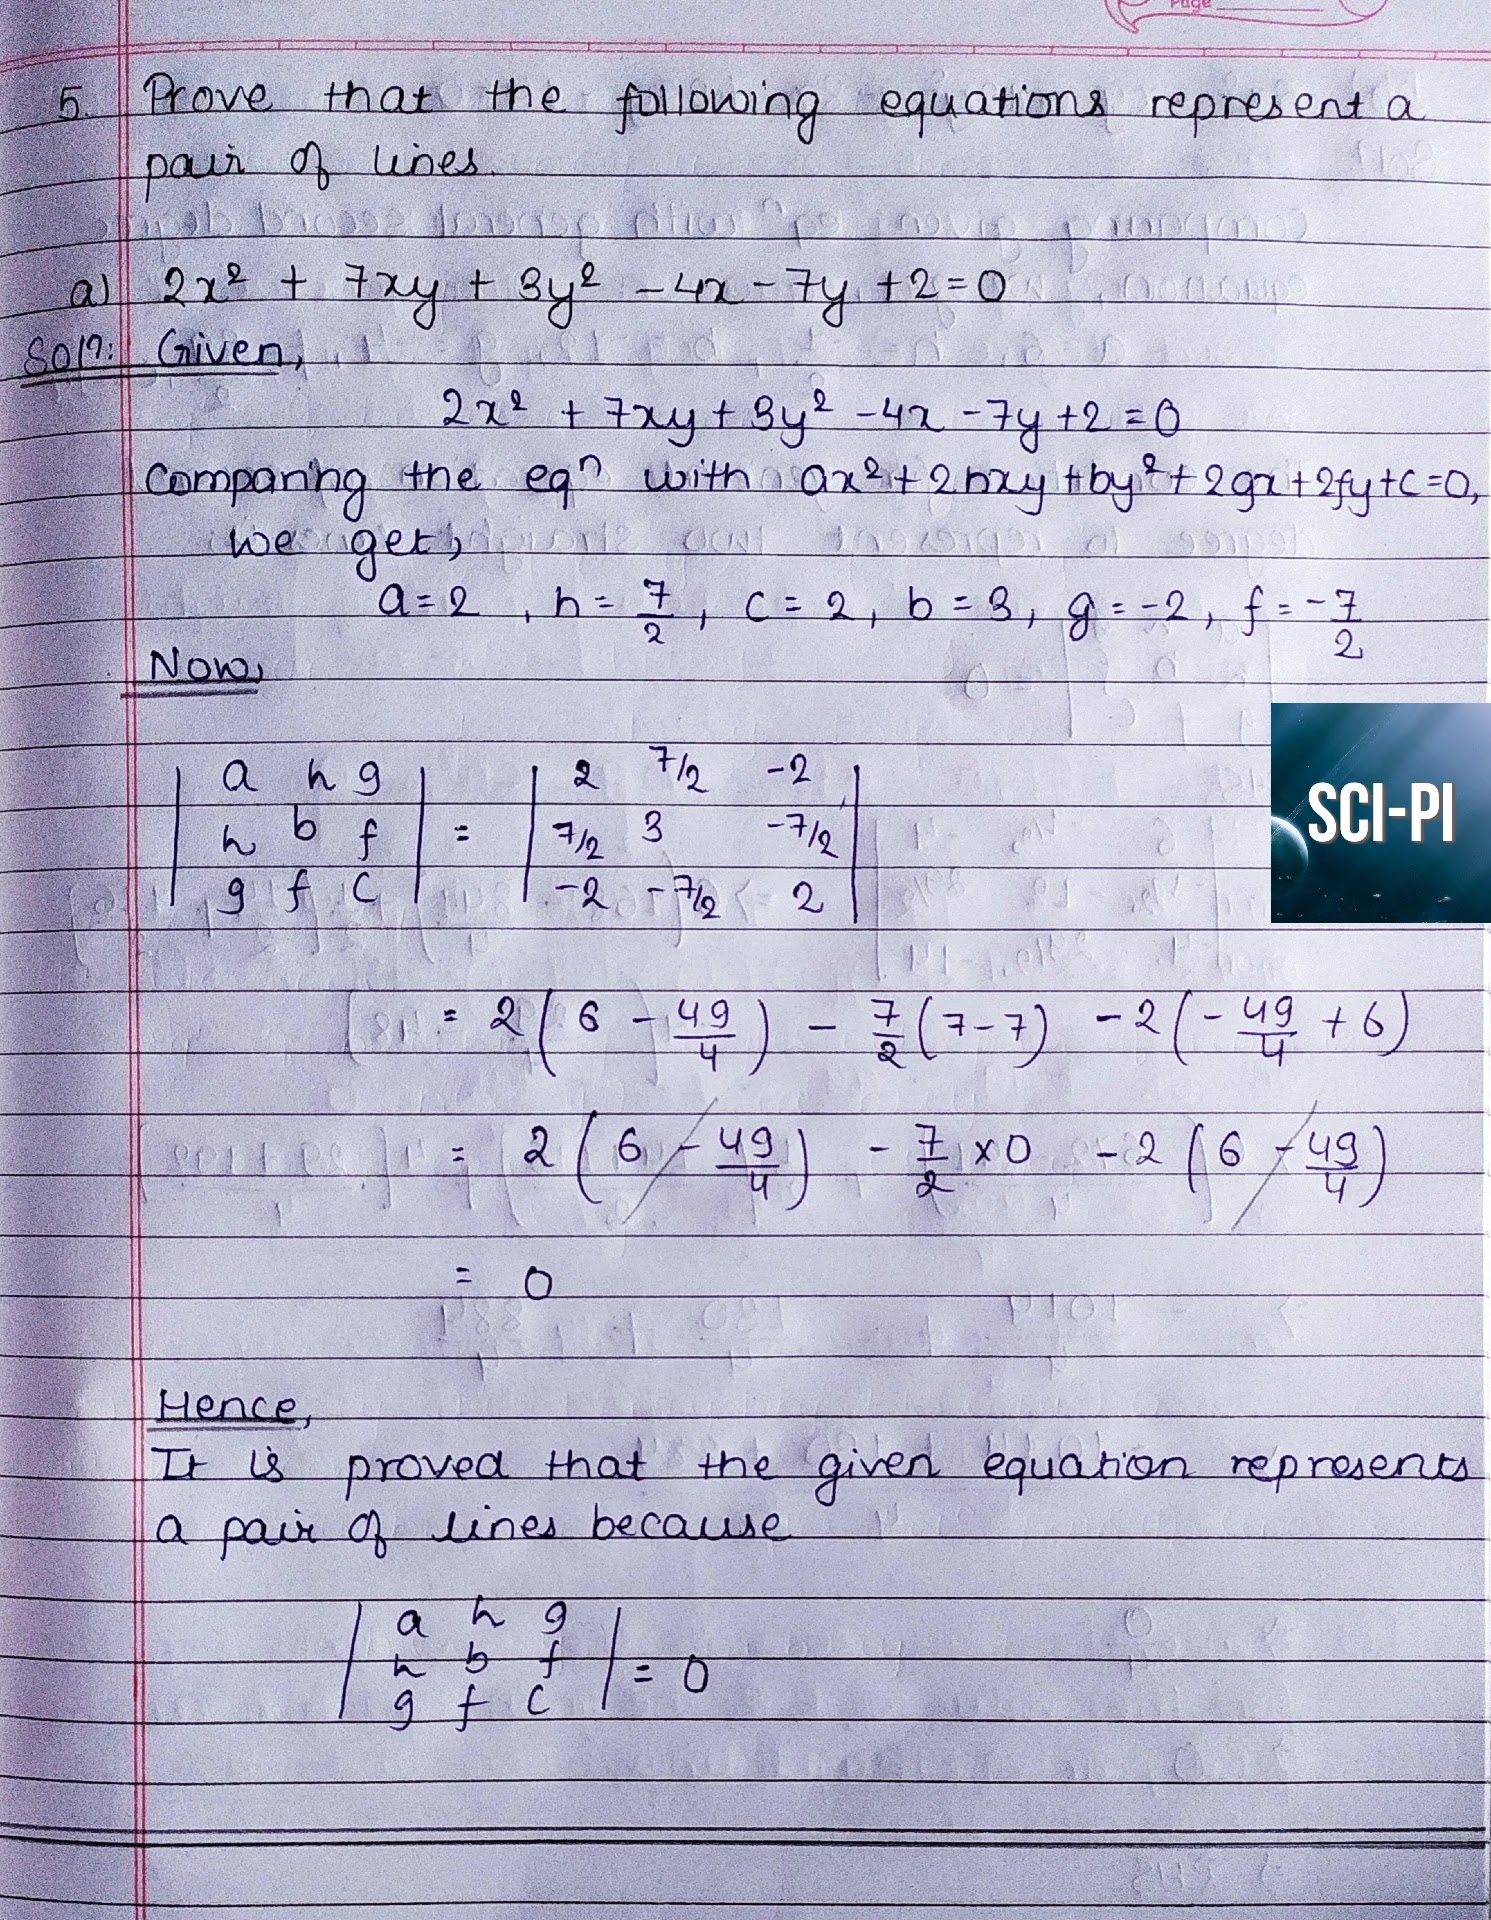 Page
5. Prove that the following equations represent a
pair of lines.
a) 2x² + 7xy + 3y² - 4x - 7y + 2 = 0
Solⁿ: Given,
2x² + 7xy + 3y² - 4x - 7y + 2 = 0
Comparing the eqⁿ with ax² + 2hxy + by² + 2gx + 2fy + c = 0,
we get,
a = 2 , h = 7/2 , c = 2 , b = 3 , g = -2 , f = -7/2
Now,
| a h g | = | 2 7/2 -2 |
| h b f | | 7/2 3 -7/2 |
| g f c | | -2 -7/2 2 |
SCI-PI
= 2 ( 6 - 49/4 ) - 7/2 ( 7 - 7 ) - 2 ( - 49/4 + 6 )
= 2 ( 6 - 49/4 ) - 7/2 × 0 - 2 ( 6 - 49/4 )
= 0
Hence,
It is proved that the given equation represents
a pair of lines because
| a h g |
| h b f | = 0
| g f c |